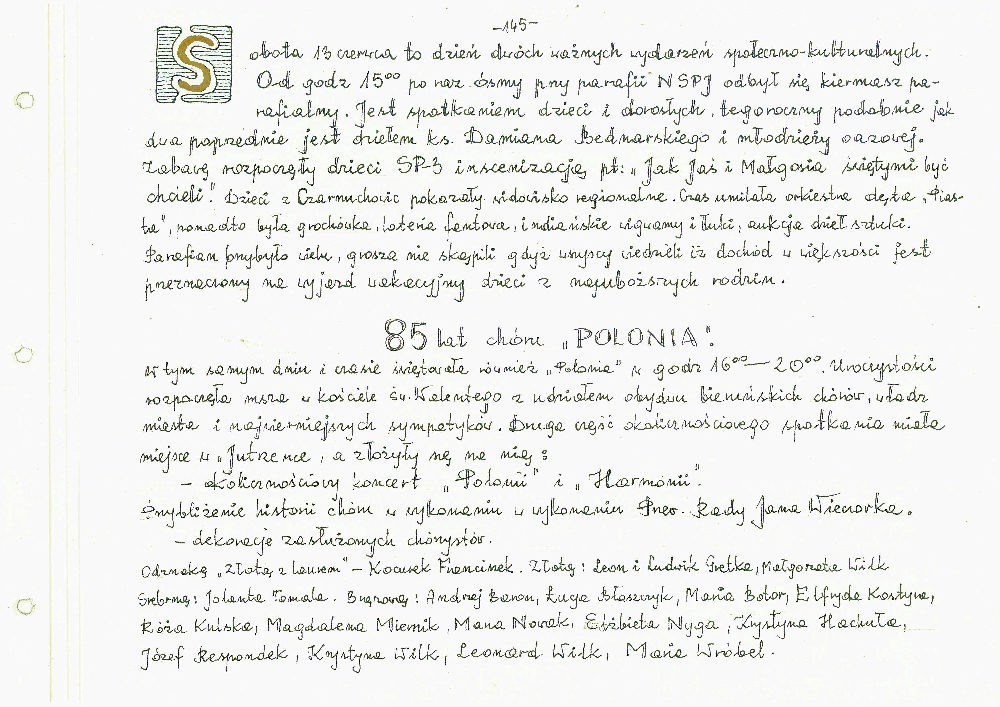 -145-
Sobota 13 czerwca to dzień dwóch ważnych wydarzeń społeczno-kulturalnych.
Od godz 15⁰⁰ po raz ósmy przy parafii NSPJ odbył się kiermasz pa-
rafialny. Jest spotkaniem dzieci i dorosłych, tegoroczny podobnie jak
dwa poprzednie jest dziełem ks. Damiana Bednarskiego i młodzieży oazowej.
Zabawę rozpoczęły dzieci SP-3 inscenizacją pt: „Jak Jaś i Małgosia świętymi być
chcieli". Dzieci z Czarnuchowic pokazały widowisko regionalne. Czas umilała orkiestra dęta „Pias-
ta", ponadto była grochówka, loteria fantowa, indiańskie wigwamy i łuki, aukcja dzieł sztuki.
Parafian przybyło wielu, grosza nie skąpili gdyż wszyscy wiedzieli iż dochód w większości jest
przeznaczony na wyjazd wakacyjny dzieci z najuboższych rodzin.
85 lat chóru „POLONIA".
W tym samym dniu i czasie świętowała również „Polonia" w godz 16⁰⁰—20⁰⁰. Uroczystości
rozpoczęła msza w kościele św. Walentego z udziałem obydwu bieruńskich chórów, władz
miasta i najwierniejszych sympatyków. Druga część okolicznościowego spotkania miała
miejsce w „Jutrzence, a złożyły się na nią:
- okolicznościowy koncert „Polonii" i „Harmonii".
Przybliżenie historii chóru w wykonaniu w wykonaniu Przew. Rady Jana Wieczorka.
- dekoracje zasłużonych chórzystów.
Odznakę „Złotą z laurem" - Kocurek Franciszek. Złotą: Leon i Ludwik Gretka, Małgorzata Wilk
Srebrną: Jolanta Tomala. Brązową: Andrzej Baron, Łucja Błaszczyk, Maria Botor, Elfryda Kostyra,
Róża Kulska, Magdalena Miernik, Maria Nowak, Elżbieta Nyga, Krystyna Hachuła,
Józef Respondek, Krystyna Wilk, Leonard Wilk, Maria Wróbel.